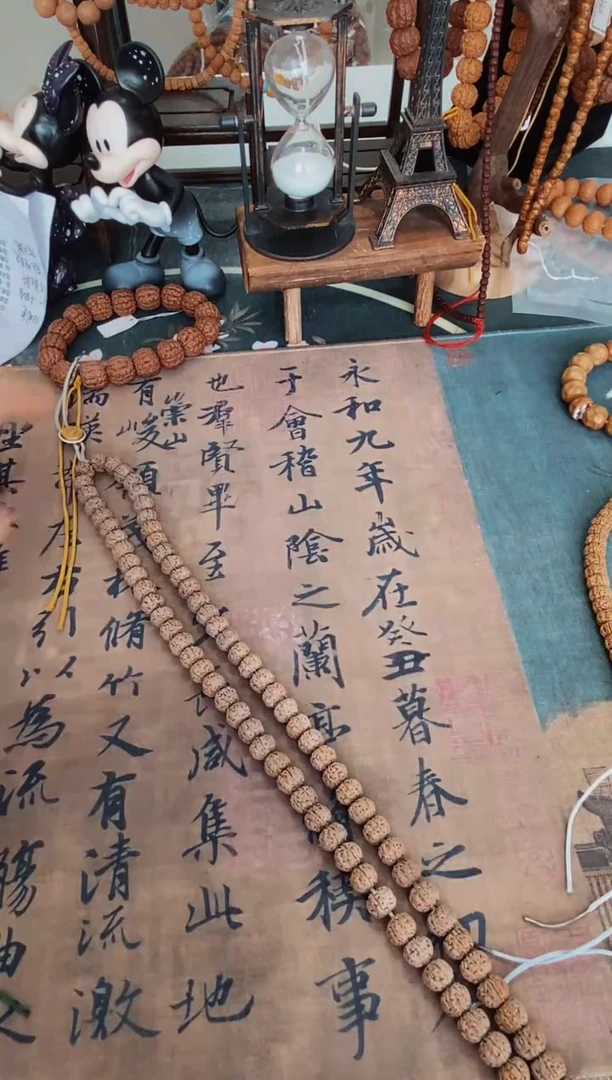 永和九年歲在癸丑暮春之
于會稽山陰之蘭亭稧事
也羣賢畢至咸集此地
有崇山峻領林脩竹又有清流激
左右引以為流觴曲
坐其